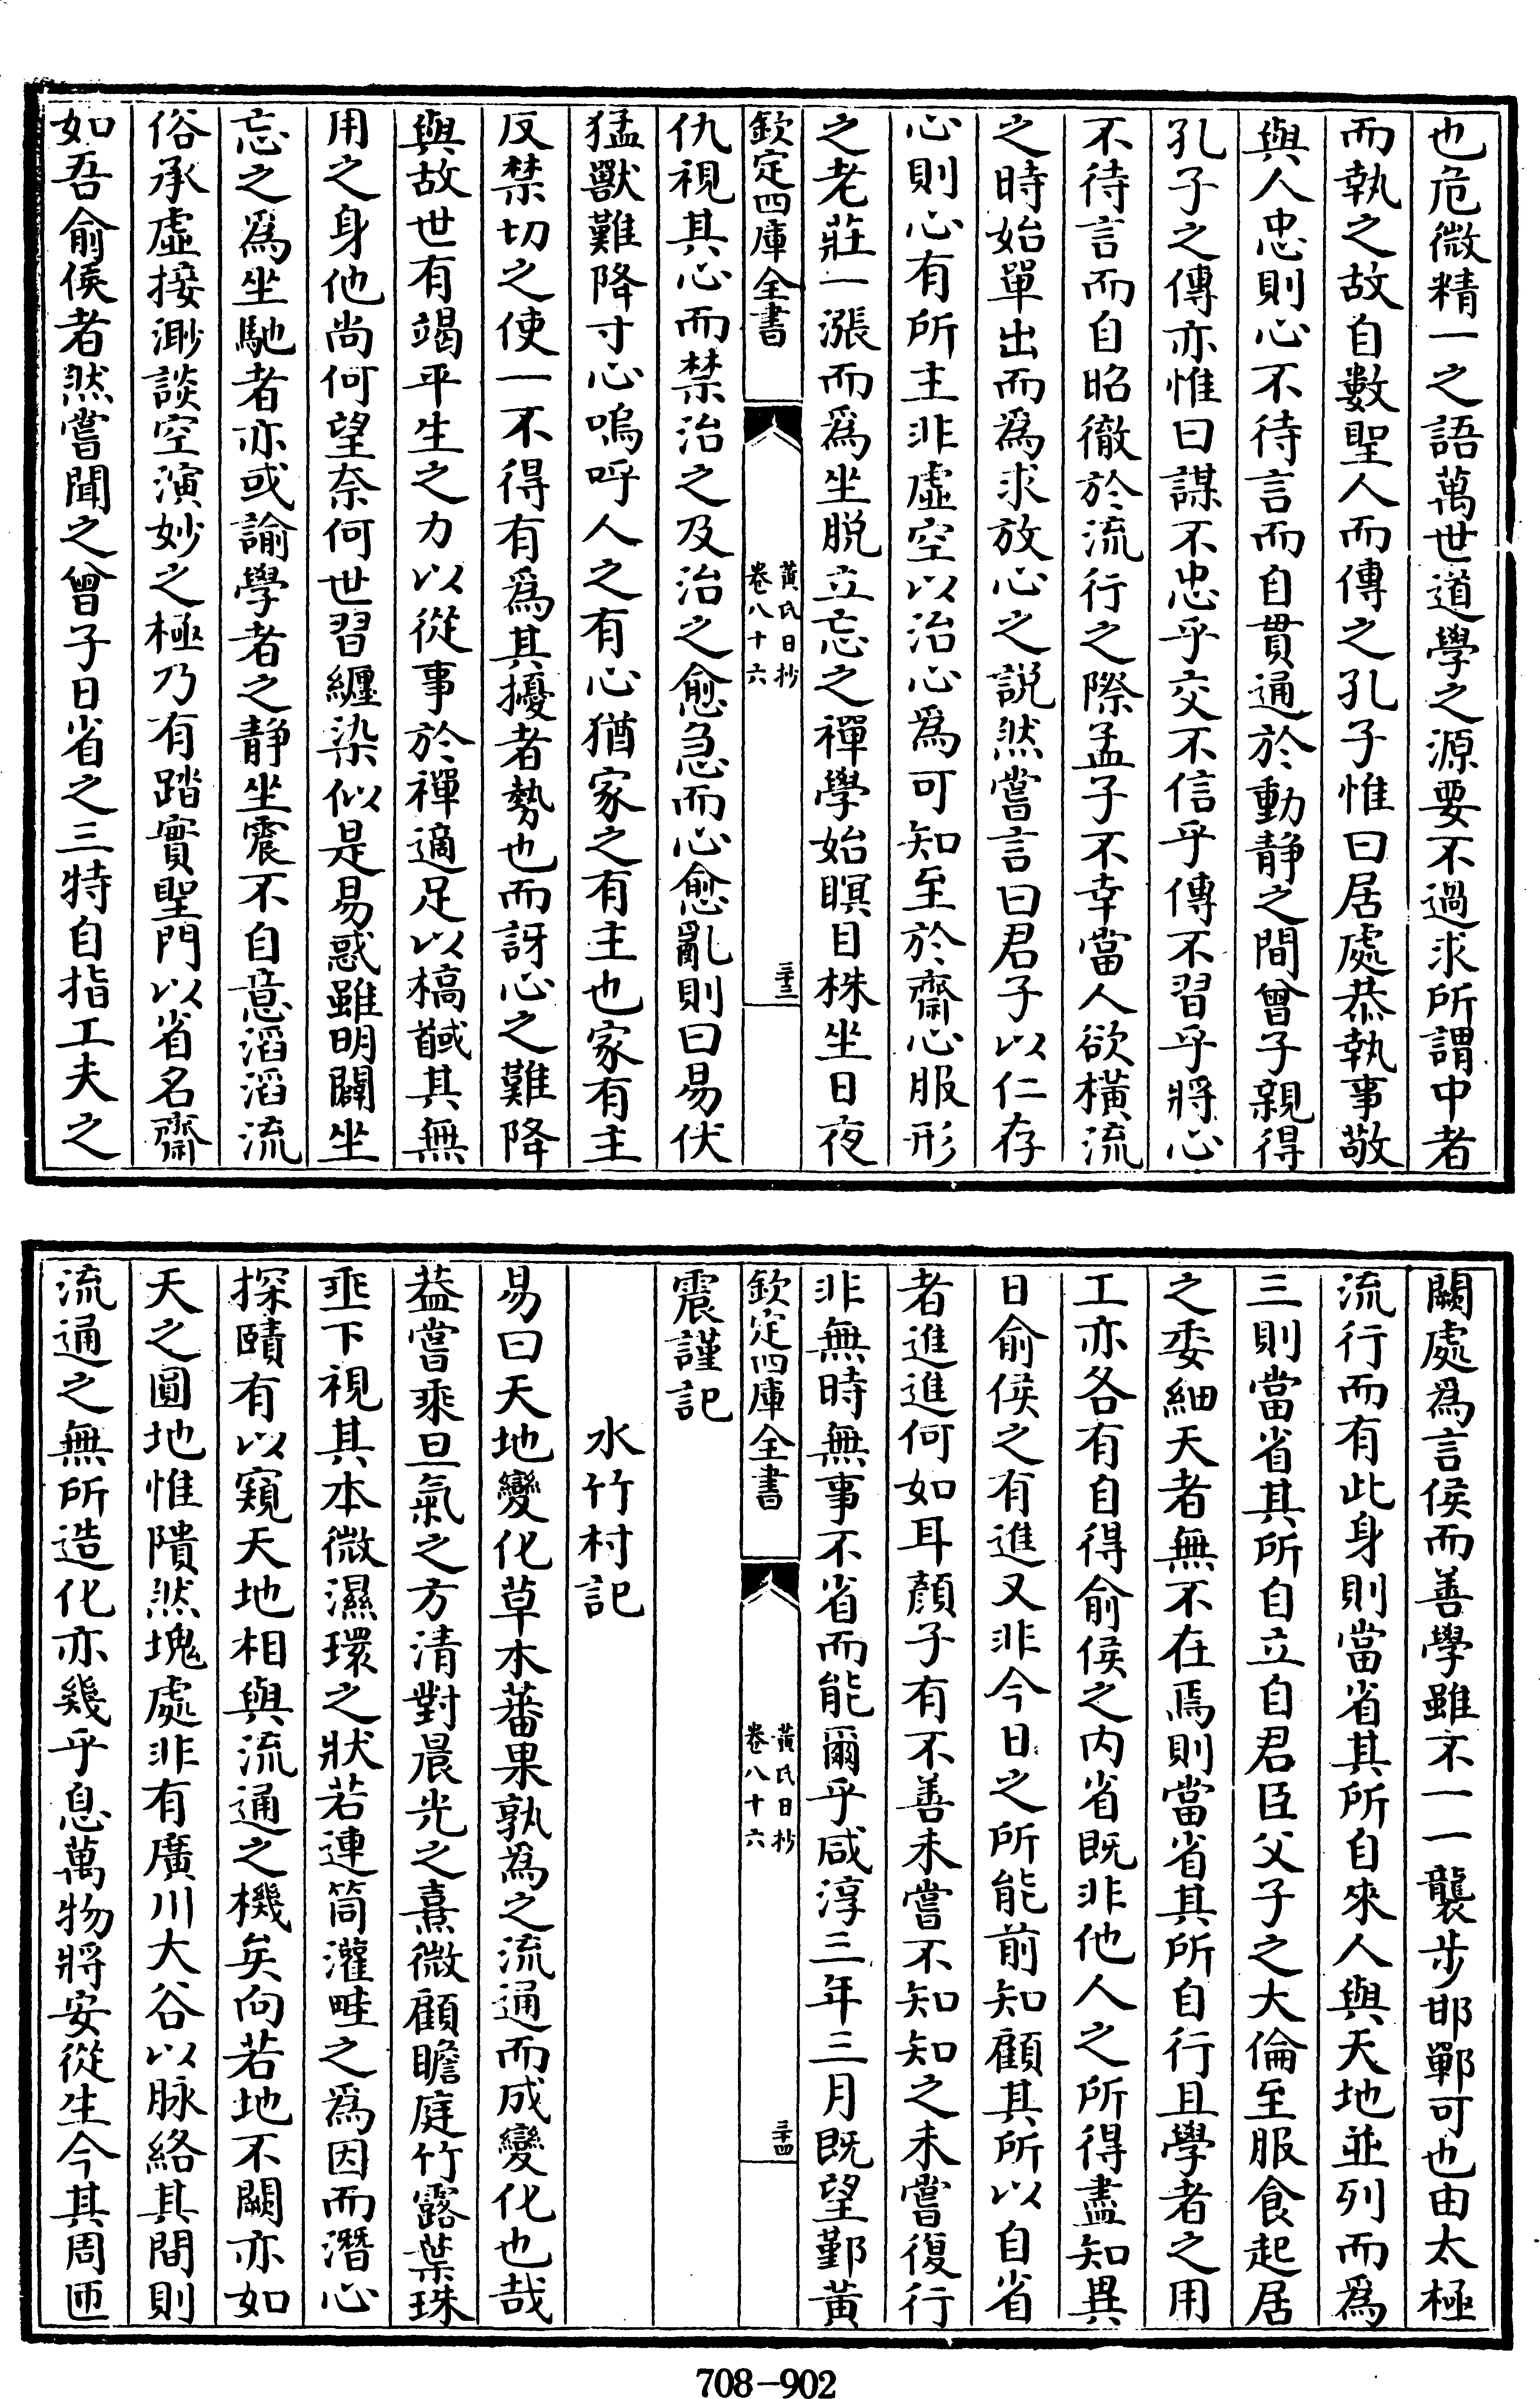 也危微精一之語萬世道學之源要不過求所謂中者
而執之故自數聖人而傳之孔子惟曰居處恭執事敬
與人忠則心不待言而自貫通於動靜之間曾子親得
孔子之傳亦惟曰謀不忠乎交不信乎傳不習乎將心
不待言而自昭徹於流行之際孟子不幸當人欲橫流
之時始單出而為求放心之説然嘗言曰君子以仁存
心則心有所主非虛空以治心爲可知至於齋心服形
之老莊一漲而爲坐脱立忘之禪學始瞑目株坐日夜
欽定四庫全書
黃氏日抄
卷八十六
三十三
仇視其心而禁治之及治之愈急而心愈亂則曰易伏
猛獸難降寸心嗚呼人之有心猶家之有主也家有主
反禁切之使一不得有爲其擾者勢也而訝心之難降
與故世有竭平生之力以從事於禪適足以槁馘其無
用之身他尚何望奈何世習纏染似是易惑雖明闢坐
忘之爲坐馳者亦或諭學者之静坐震不自意滔滔流
俗承虛接渺談空演妙之極乃有踏實聖門以省名齋
如吾俞侯者然嘗聞之曾子日省之三特自指工夫之
闕處爲言侯而善學雖不一一襲步邯鄲可也由太極
流行而有此身則當省其所自來人與天地並列而爲
三則當省其所自立自君臣父子之大倫至服食起居
之委細天者無不在焉則當省其所自行且學者之用
工亦各有自得俞侯之内省既非他人之所得盡知異
日俞侯之有進又非今日之所能前知顧其所以自省
者進進何如耳顔子有不善未嘗不知知之未嘗復行
非無時無事不省而能爾乎咸淳三年三月既望鄞黃
欽定四庫全書
黃氏日抄
卷八十六
三十四
震謹記
水竹村記
易曰天地變化草木蕃果孰為之流通而成變化也哉
葢嘗乘旦氣之方清對晨光之熹微顧瞻庭竹露葉珠
垂下視其本微濕環之狀若連筒灌畦之爲因而潛心
探賾有以窺天地相與流通之機矣向若地不闕亦如
天之圓地惟隤然塊處非有廣川大谷以脉絡其間則
流通之無所造化亦幾乎息萬物將安從生今其周匝
708-902